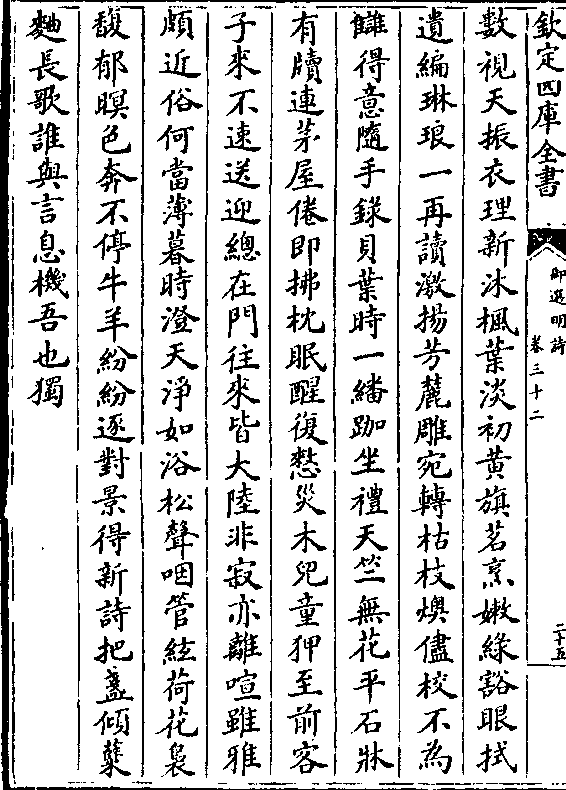 欽定四庫全書
御選明詩
卷三十二
二十五
數視天振衣理新沐楓葉淡初黄旗茗烹嫩綠豁眼拭
遺編琳琅一再讀激揚芳蘛雕宛轉枯枝燠儘校不為
讎得意隨手錄貝葉時一繙跏坐禮天竺無花平石牀
有牘連茅屋倦即拂枕眠醒復憗災木兒童狎至前客
子來不速送迎總在門往來皆大陸非寂亦離喧雖雅
頗近俗何當薄暮時澄天淨如浴松聲咽管絃荷花裊
馥郁暝色奔不停牛羊紛紛逐對景得新詩把盞傾蘖
麯長歌誰與言息機吾也獨